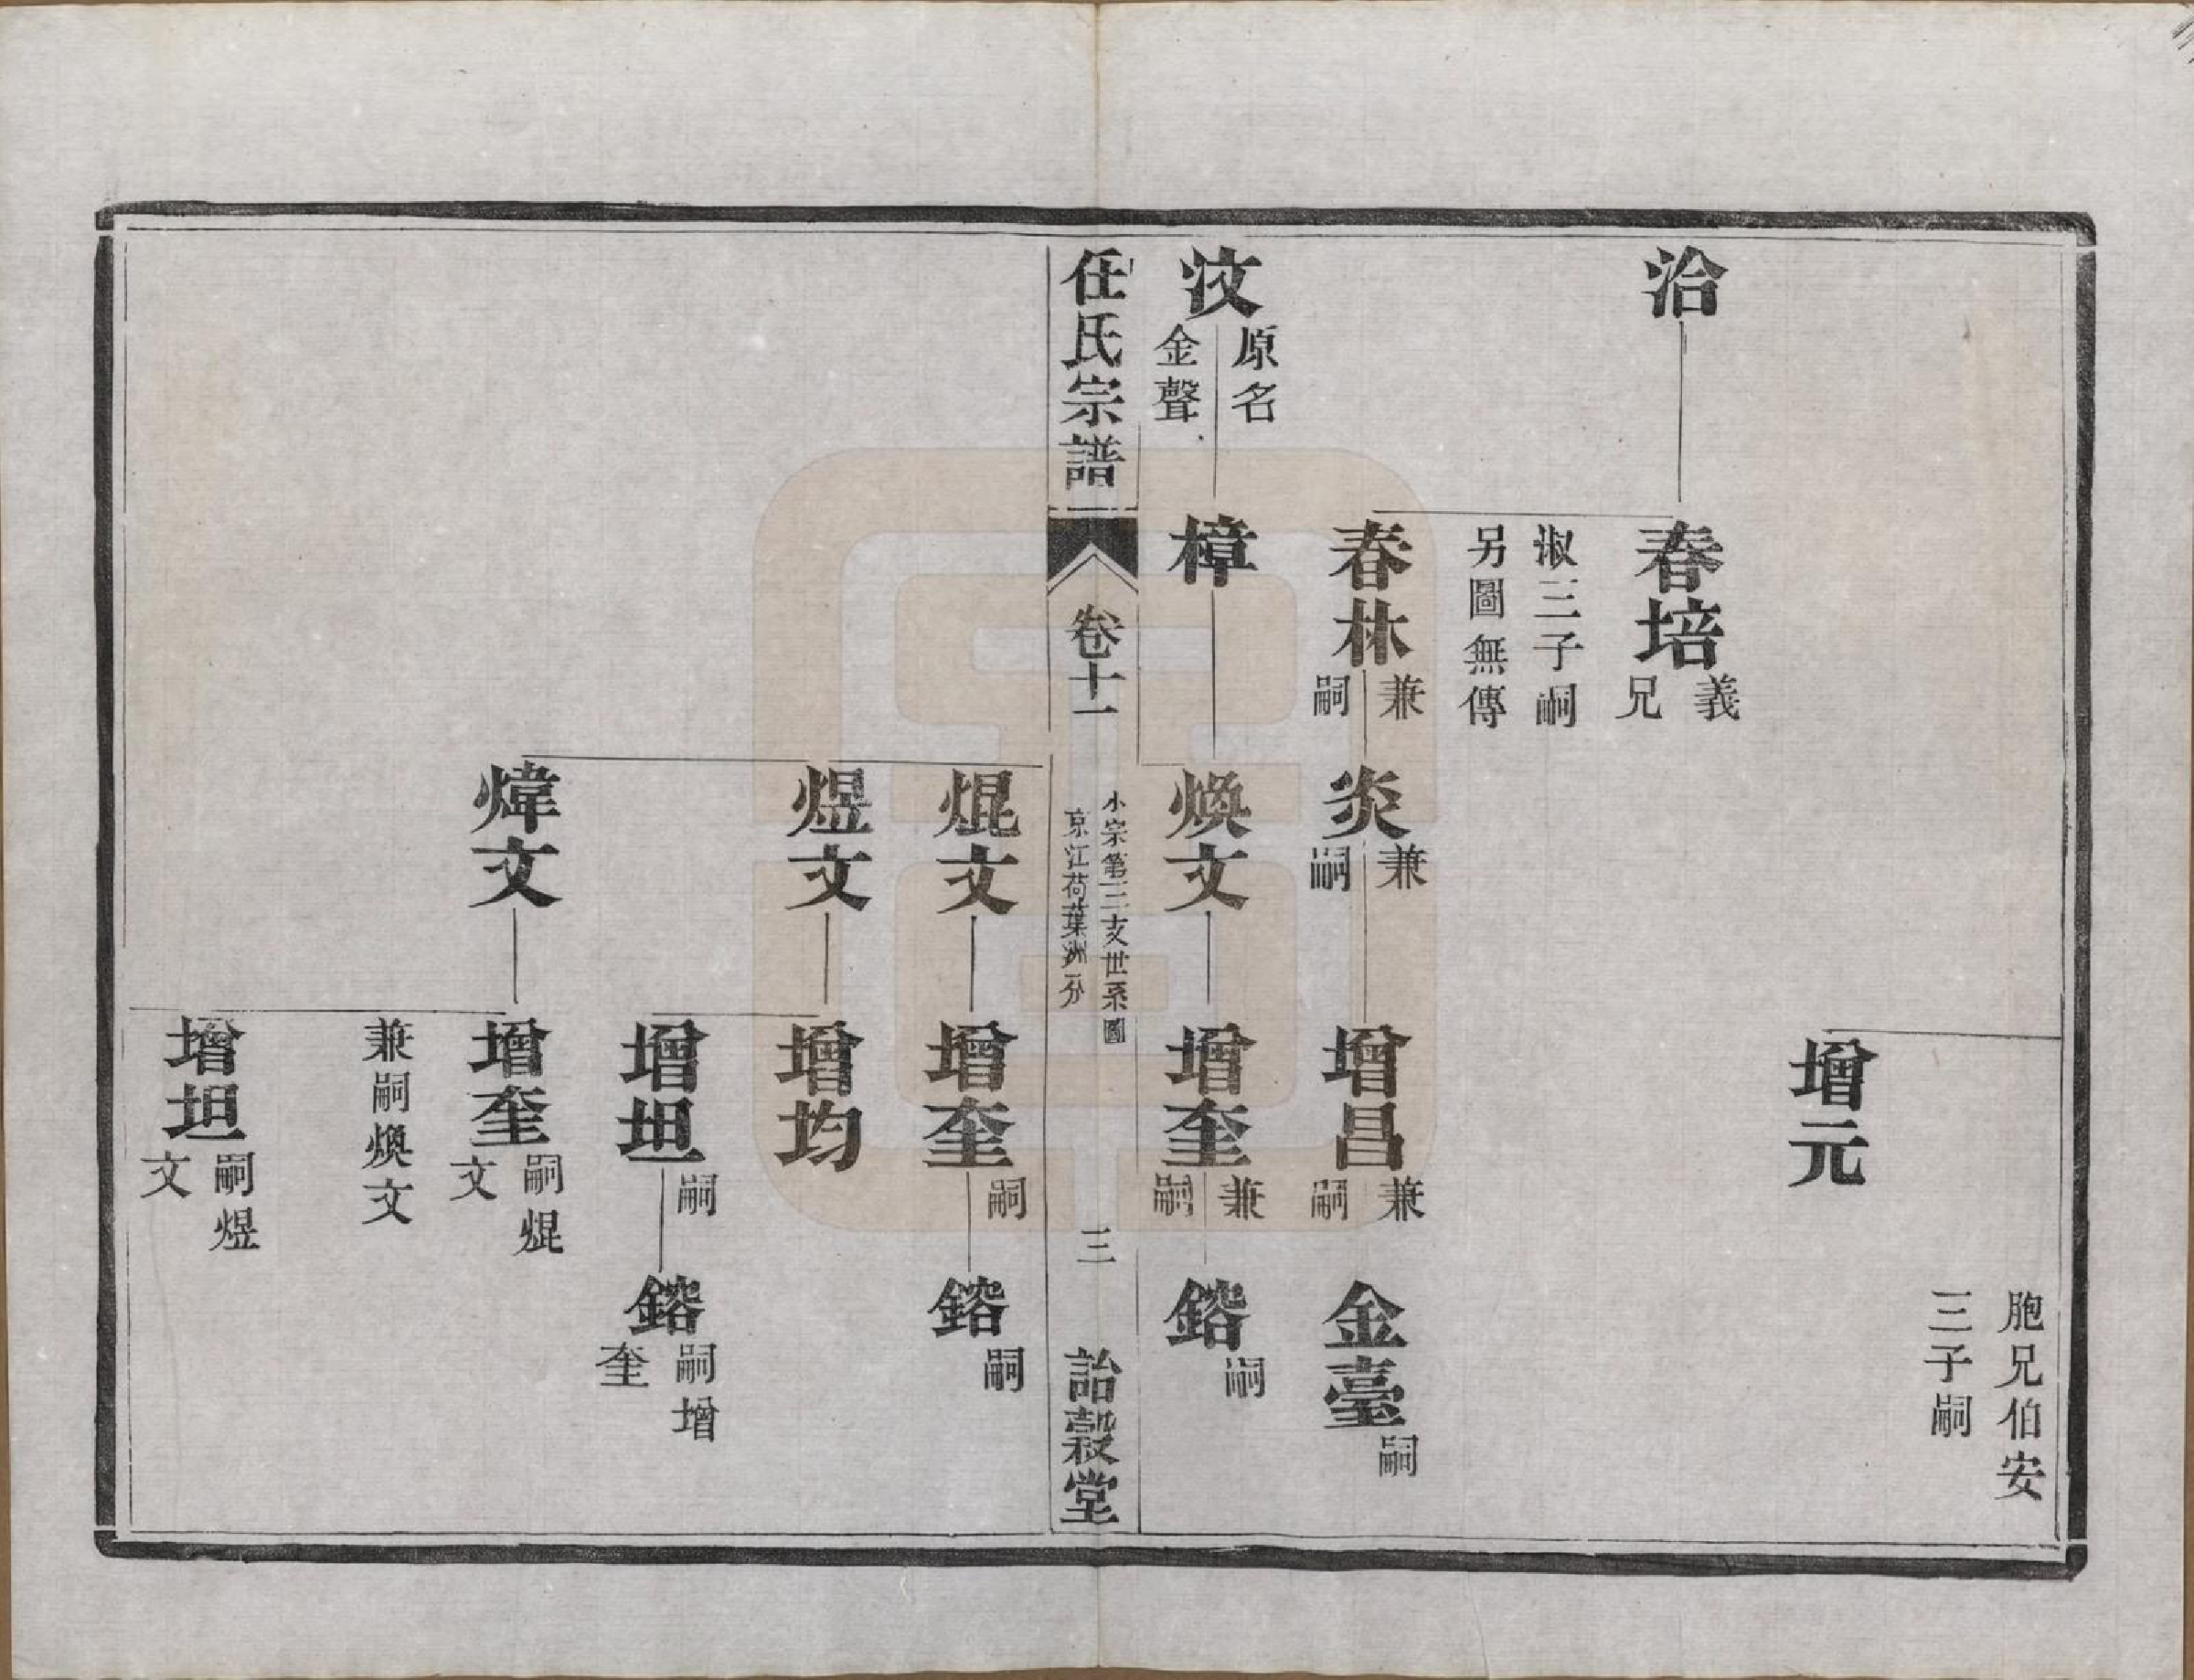 胞兄伯安
三子嗣
增元
洽
春培
義
兄
淑三子嗣
另圖無傳
春林
兼
嗣
炎
兼
嗣
增昌
兼
嗣
金臺
嗣
汶
原名
金聲
樟
煥文
增奎
兼
嗣
鎔
嗣
任氏宗譜
卷十一
小宗第三支世系圖
京江荷葉洲分
三
詒穀堂
焜文
增奎
嗣
鎔
嗣
煜文
增均
增坦
嗣
鎔
嗣增
奎
煒文
增奎
嗣焜
文
兼嗣煥文
增坦
嗣煜
文